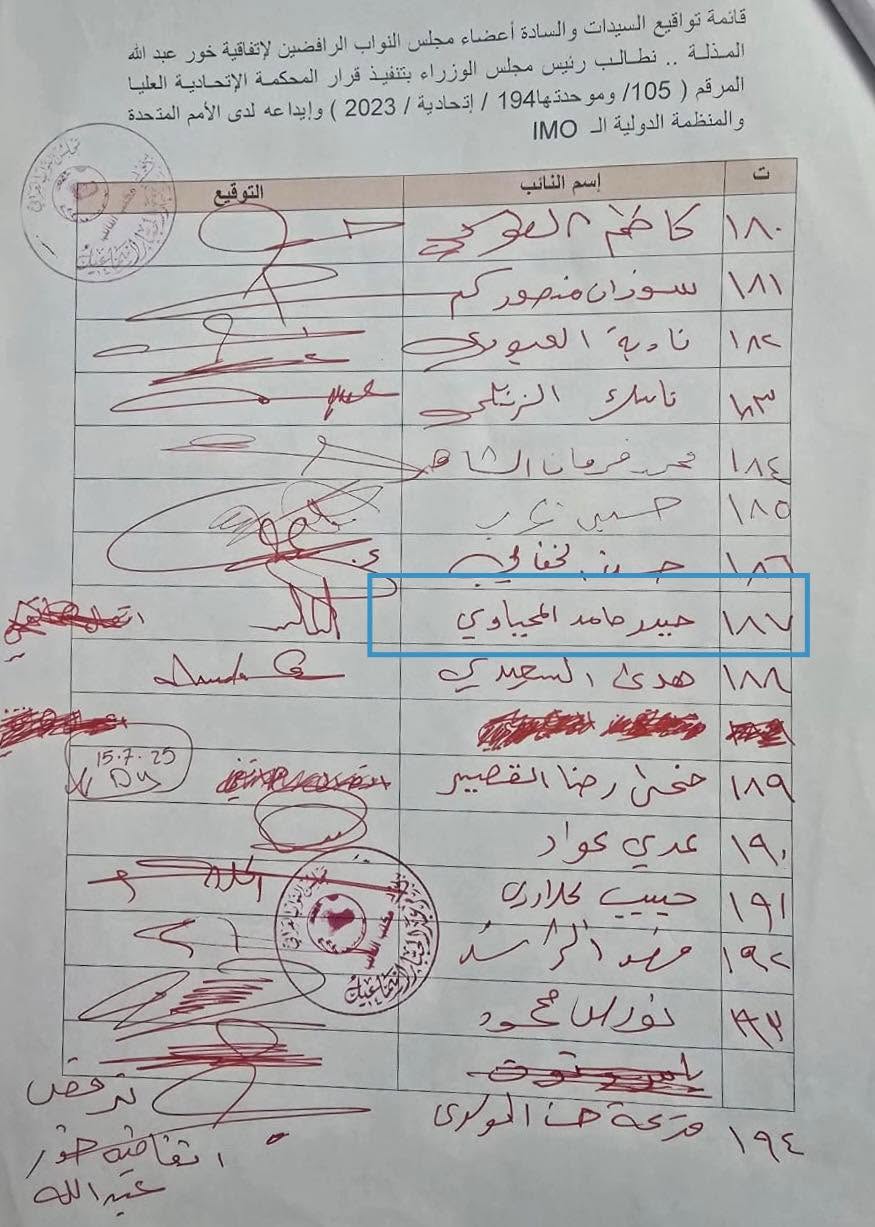 قائمة تواقيع السيدات والسادة أعضاء مجلس النواب الرافضين لإتفاقية خور عبد الله
المذلة .. نطالب رئيس مجلس الوزراء بتنفيذ قرار المحكمة الإتحادية العليا
المرقم ( 105/ وموحدتها194 / إتحادية / 2023 ) وإيداعه لدى الأمم المتحدة
والمنظمة الدولية الـ IMO
ت إسم النائب التوقيع
١٨٠ كاظم الطوكي
١٨١ سوزان منصور كم
١٨٢ نادية العبودي
١٨٣
١٨٤ محمد فرمان الشاهر
١٨٥ حسين عرب
١٨٦ حسن الخفاجي
١٨٧ حيدر حامد المحياوي
١٨٨ هدى السعيدي
١٨٩ ضحى رضا القصير
15.7.25
١٩٠ عدي عواد
١٩١ حبيب الحلاوي
١٩٢ مهند الراشد
١٩٣ محمود
١٩٤ حسن
نرفض
اتفاقية خور
عبد الله